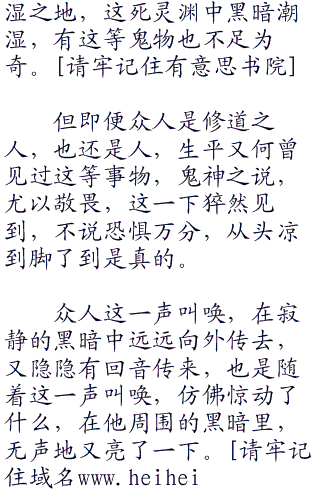 湿之地，这死灵渊中黑暗潮
湿，有这等鬼物也不足为
奇。[请牢记住有意思书院]
但即便众人是修道之
人，也还是人，生平又何曾
见过这等事物，鬼神之说，
尤以敬畏，这一下猝然见
到，不说恐惧万分，从头凉
到脚了到是真的。
众人这一声叫唤，在寂
静的黑暗中远远向外传去，
又隐隐有回音传来，也是随
着这一声叫唤，仿佛惊动了
什么，在他周围的黑暗里，
无声地又亮了一下。[请牢记
住域名www.heihei